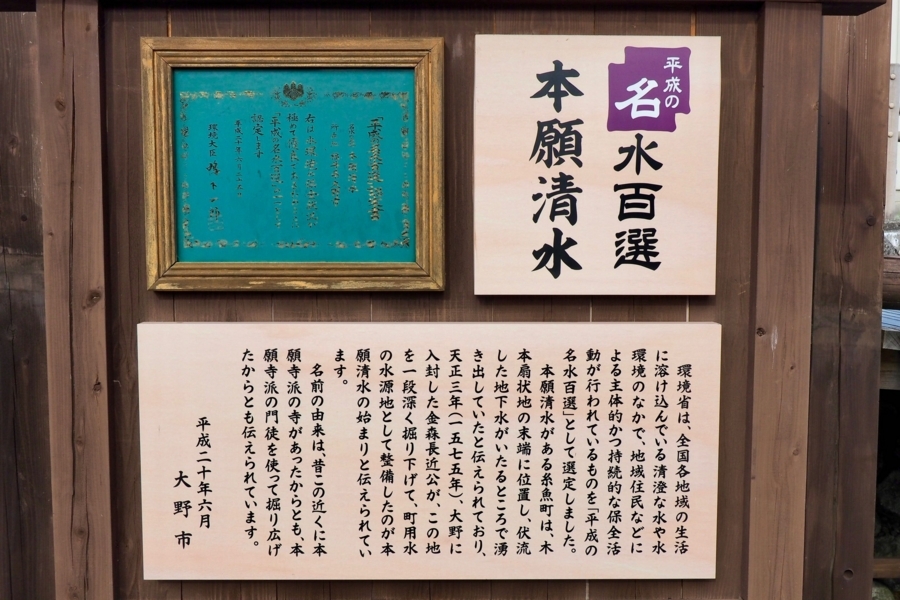 平成の
名水百選
本願清水
環境省は、全国各地域の生活
に溶け込んでいる清澄な水や水
環境のなかで、地域住民などに
よる主体的かつ持続的な保全活
動が行われているものを「平成の
名水百選」として選定しました。
本願清水がある糸魚町は、木
本扇状地の末端に位置し、伏流
した地下水がいたるところで湧
き出していたと伝えられており、
天正三年(一五七五年)、大野に
入封した金森長近公が、この地
を一段深く掘り下げて、町用水
の水源地として整備したのが本
願清水の始まりと伝えられてい
ます。
名前の由来は、昔この近くに本
願寺派の寺があったからとも、本
願寺派の門徒を使って掘り広げ
たからとも伝えられています。
平成二十年六月
大野市
認定します
環境大臣